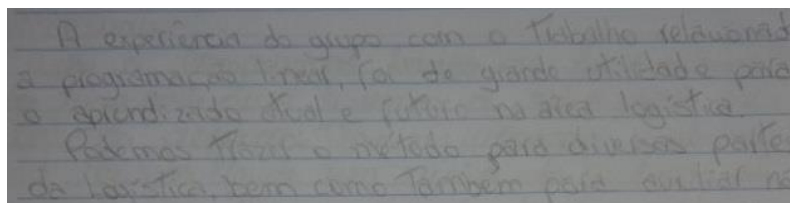 A experiência do grupo com o Trabalho relacionad
a programação linear, foi de grande utilidade para
o aprendizado atual e futuro na área logística.
Podemos Trazer o método para diversas parte
da Logística, bem como Também para auxiliar na